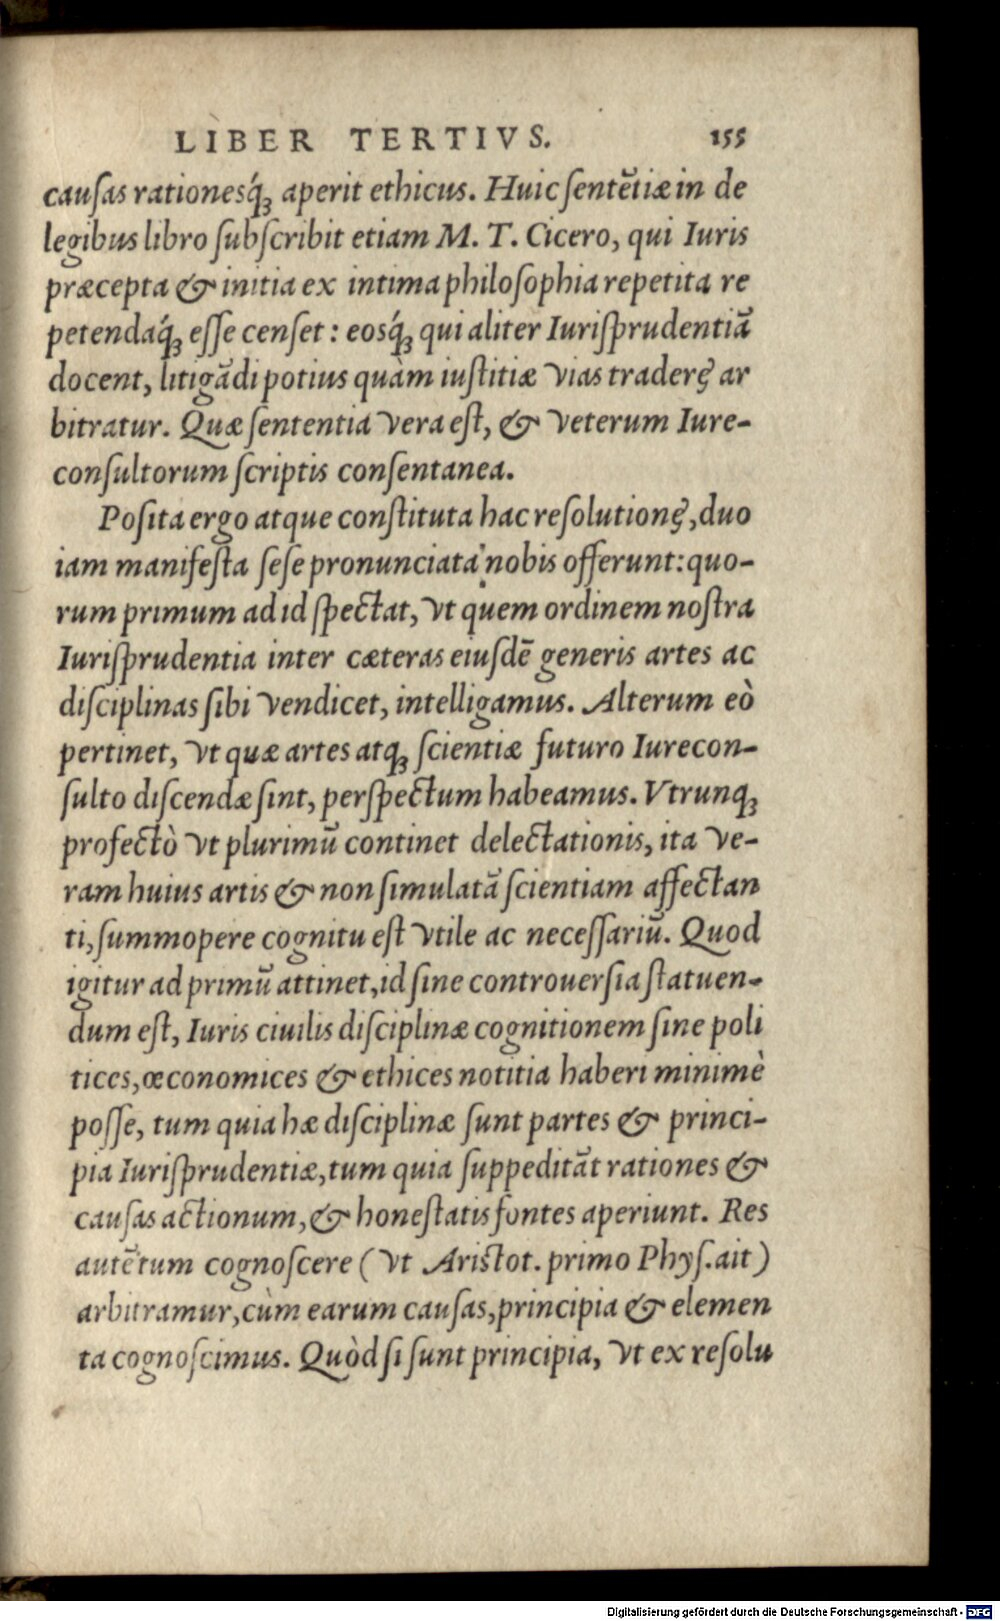 LIBER TERTIVS. 155
cauſas rationesq́ꝫ aperit ethicus. Huic ſentẽtiæ in de
legibus libro ſubſcribit etiam M. T. Cicero, qui Iuris
præcepta & initia ex intima philoſophia repetita re
petendaq́ꝫ eſſe cenſet: eosq́ꝫ qui aliter Iuriſprudentiã
docent, litigãdi potius quàm iuſtitiæ vias traderȩ́ ar
bitratur. Quæ ſententia vera eſt, & veterum Iure-
conſultorum ſcriptis conſentanea.
Poſita ergo atque conſtituta hac reſolutionȩ́, duo
iam manifeſta ſeſe pronunciata nobis offerunt: quo-
rum primum ad id ſpectat, vt quem ordinem noſtra
Iuriſprudentia inter cæteras eiuſdẽ generis artes ac
diſciplinas ſibi vendicet, intelligamus. Alterum eò
pertinet, vt quæ artes atqꝫ ſcientiæ futuro Iurecon-
ſulto diſcendæ ſint, perſpectum habeamus. Vtrunqꝫ
profectò vt plurimũ continet delectationis, ita ve-
ram huius artis & non ſimulatã ſcientiam affectan
ti, ſummopere cognitu eſt vtile ac neceſſariũ. Quod
igitur ad primũ attinet, id ſine controuerſia ſtatuen-
dum eſt, Iuris ciuilis diſciplinæ cognitionem ſine poli
tices, œconomices & ethices notitia haberi minimè
poſſe, tum quia hæ diſciplinæ ſunt partes & princi-
pia Iuriſprudentiæ, tum quia ſuppeditãt rationes &
cauſas actionum, & honeſtatis fontes aperiunt. Res
autẽ tum cognoſcere (vt Ariſtot. primo Phyſ. ait)
arbitramur, cùm earum cauſas, principia & elemen
ta cognoſcimus. Quòd ſi ſunt principia, vt ex reſolu
Digitalisierung gefördert durch die Deutsche Forschungsgemeinschaft - DFG